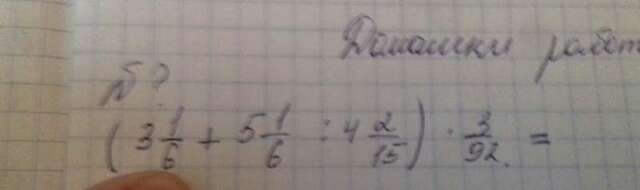 Домашки работ
№ ?
(3 1/6 + 5 1/6 : 4 2/15) · 3/92. =